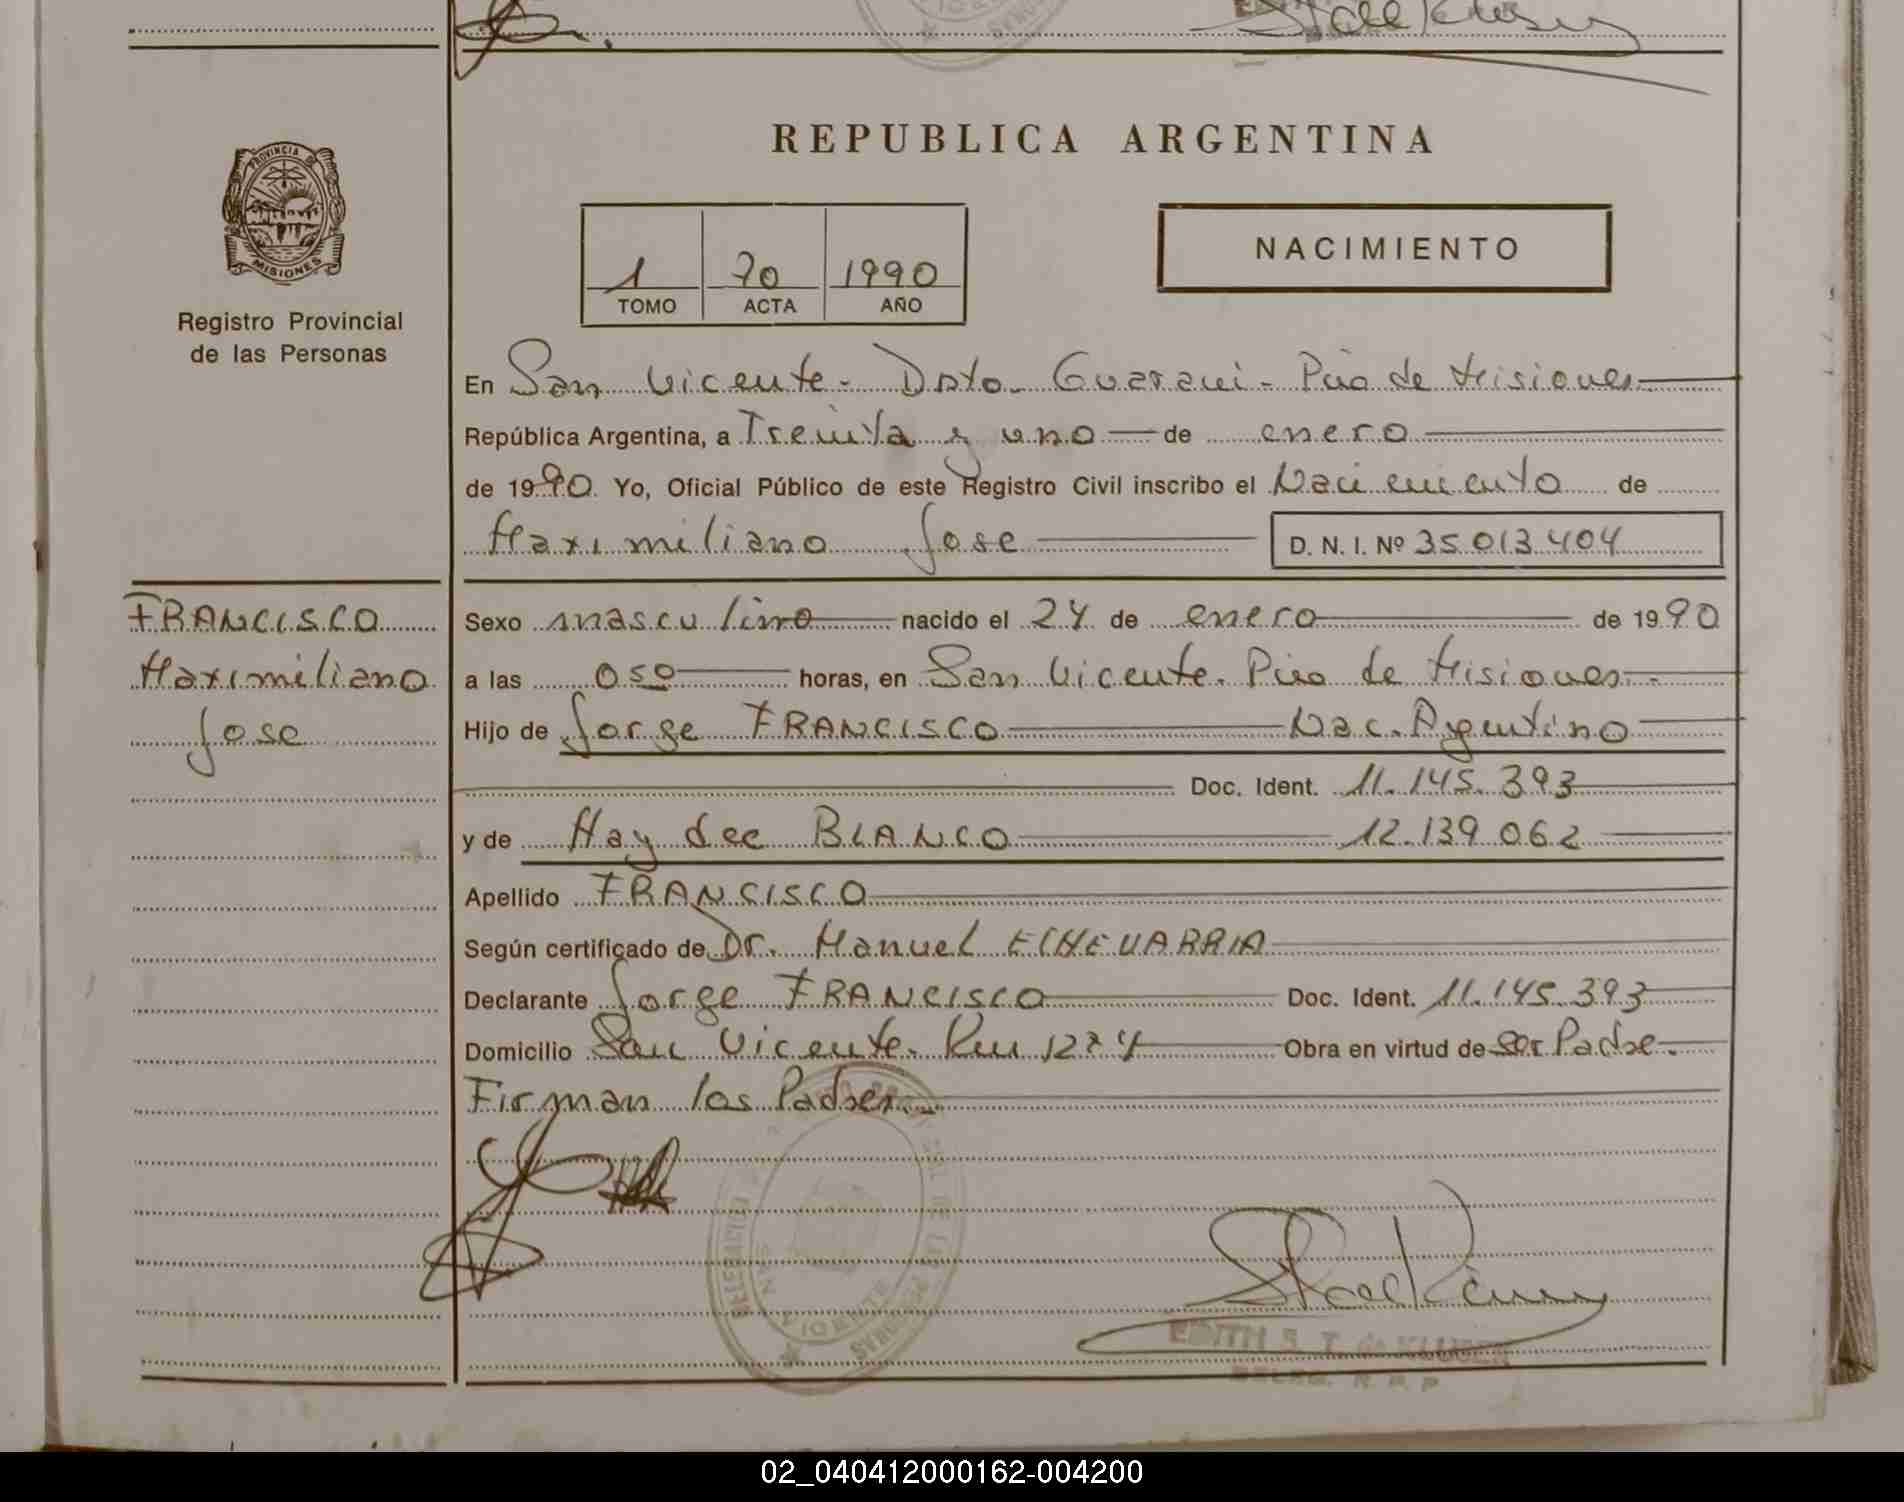 REPUBLICA ARGENTINA
PROVINCIA DE
MISIONES
Registro Provincial
de las Personas
1 70 1990
TOMO ACTA AÑO
NACIMIENTO
En San Vicente - Dpto. Guarani - Pcia de Misiones
República Argentina, a Treinta y uno de enero
de 1990. Yo, Oficial Público de este Registro Civil inscribo el Nacimiento de
Maximiliano Jose D. N. I. Nº 35.013.404
FRANCISCO
Maximiliano
Jose
Sexo masculino nacido el 24 de enero de 1990
a las 050 horas, en San Vicente. Pcia de Misiones.
Hijo de Jorge FRANCISCO Nac. Argentino
Doc. Ident. 11.145.393
y de Haydee BLANCO 12.139.062
Apellido FRANCISCO
Según certificado de Dr. Manuel ECHEVARRIA
Declarante Jorge FRANCISCO Doc. Ident. 11.145.393
Domicilio San Vicente. Km 1274 Obra en virtud de ser Padre.
Firman los Padres.
EDITH S. T. de KLUSEN
DELEG. R. P. P
02_040412000162-004200